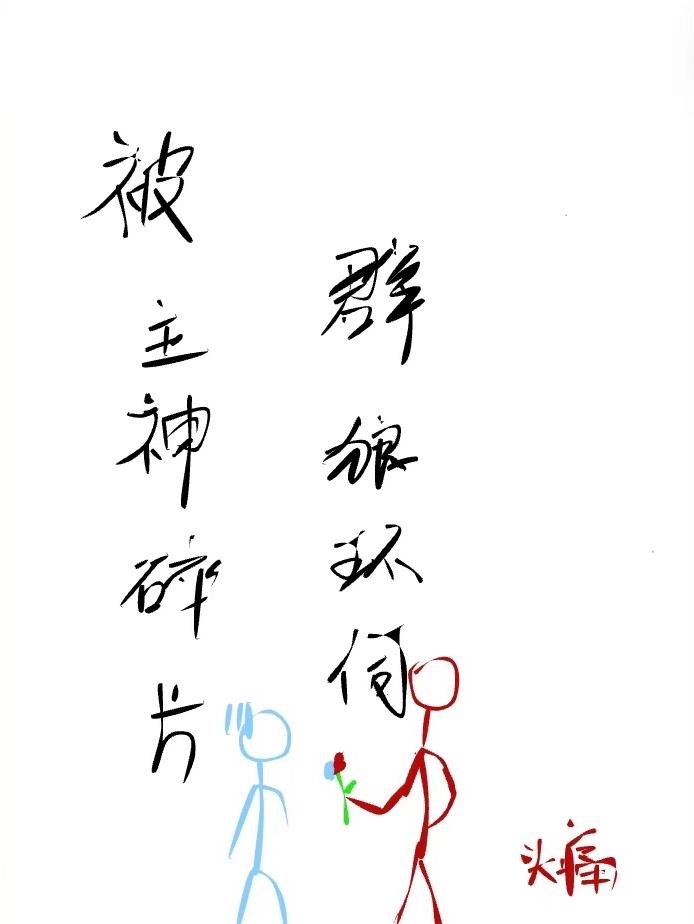 被主神碎片
群狼环伺
头痛